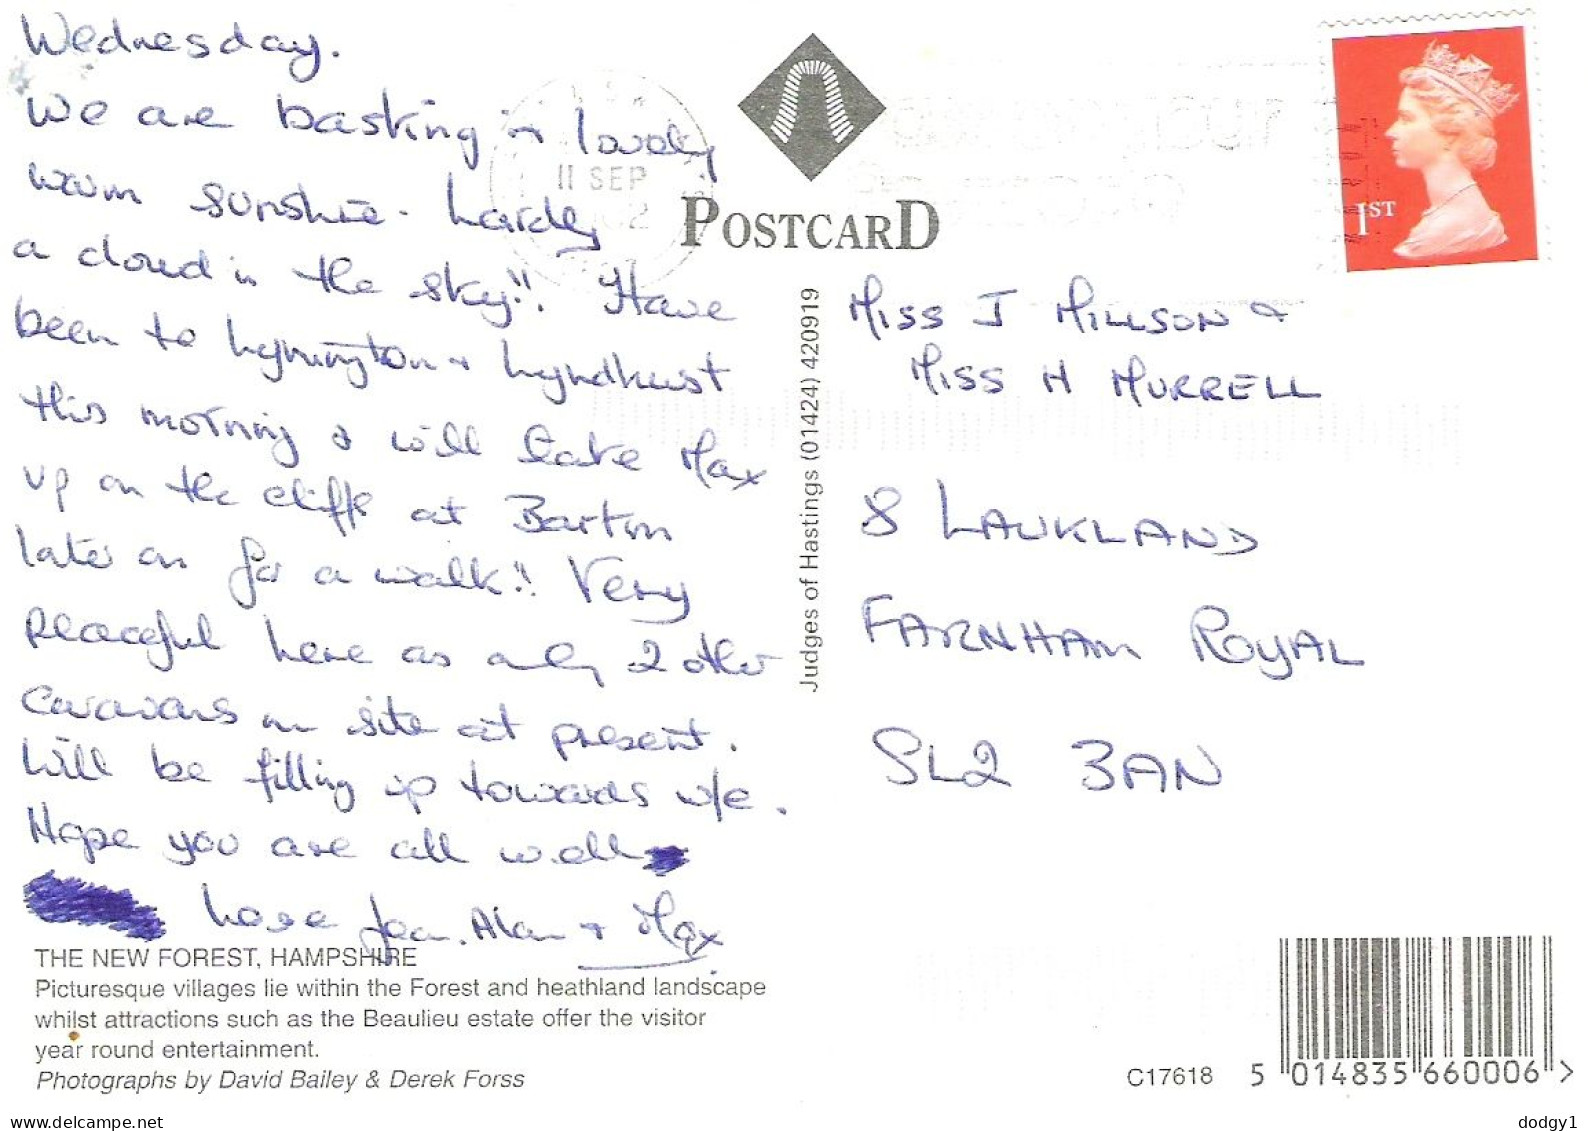 Wednesday.
We are basking in lovely
warm sunshine. hardly
a cloud in the sky!! Have
been to Lymington + Lyndhurst
this morning & will take Max
up on the cliffs at Barton
later on for a walk!! Very
peaceful here as only 2 other
caravans on site at present.
Will be filling up towards w/e.
Hope you are all well
Love Jean. Alan + Max
THE NEW FOREST, HAMPSHIRE
Picturesque villages lie within the Forest and heathland landscape
whilst attractions such as the Beaulieu estate offer the visitor
year round entertainment.
Photographs by David Bailey & Derek Forss
11 SEP
POSTCARD
Judges of Hastings (01424) 420919
1ST
MISS J MILLSON &
MISS H MURRELL
8 LAUKLAND
FARNHAM ROYAL
SL2 3AN
C17618
5 014835 660006 >
www.delcampe.net
dodgy1